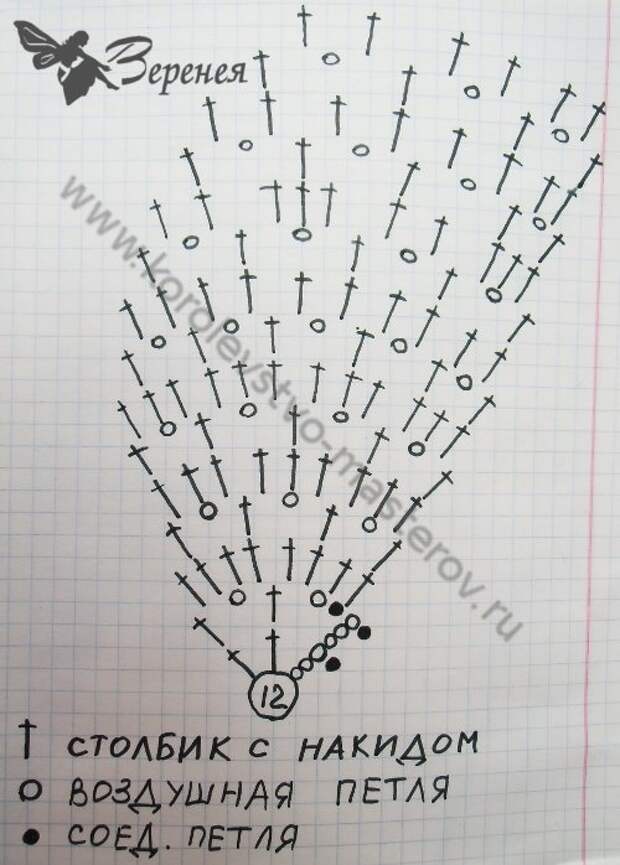 Веренея
www.korolevstvo-masterov.ru
12
† СТОЛБИК С НАКИДОМ
○ ВОЗДУШНАЯ ПЕТЛЯ
● СОЕД. ПЕТЛЯ